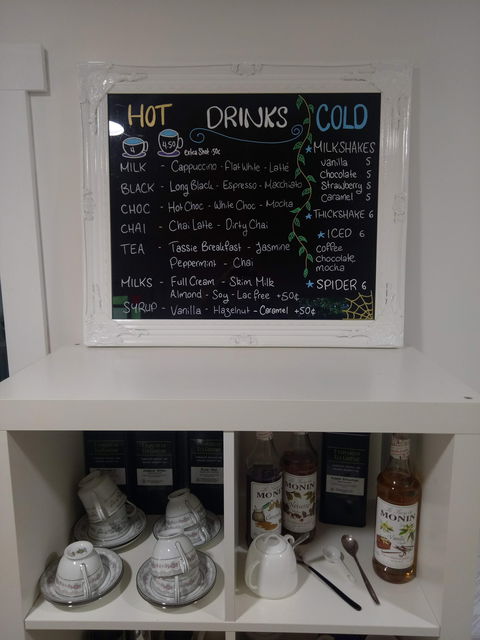 HOT DRINKS COLD
4
4.50
extra Shot 50c
MILK - Cappuccino - Flat White - Latté
BLACK - Long Black - Espresso - Macchiato
CHOC - Hot Choc - White Choc - Mocha
CHAI - Chai Latte - Dirty Chai
TEA - Tassie Breakfast - Jasmine
Peppermint - Chai
MILKS - Full Cream - Skim Milk
Almond - Soy - Lac free +50¢
SYRUP - Vanilla - Hazelnut - Caramel +50¢
MILKSHAKES
Vanilla 5
Chocolate 5
Strawberry 5
Caramel 5
THICKSHAKE 6
ICED 6
coffee
chocolate
mocha
SPIDER 6
MONIN
MONIN
MONIN